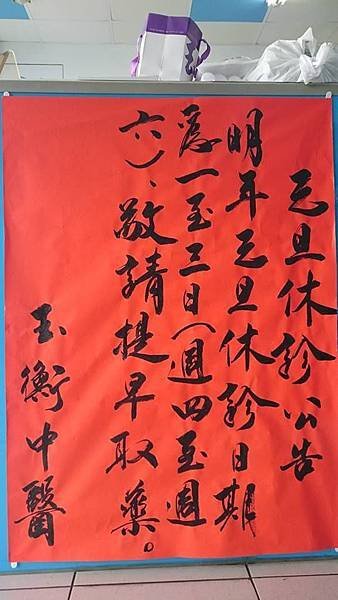 元旦休診公告
明年元旦休診日期
為一至三日(週四至週
六)、敬請提早取藥。
玉衡中醫